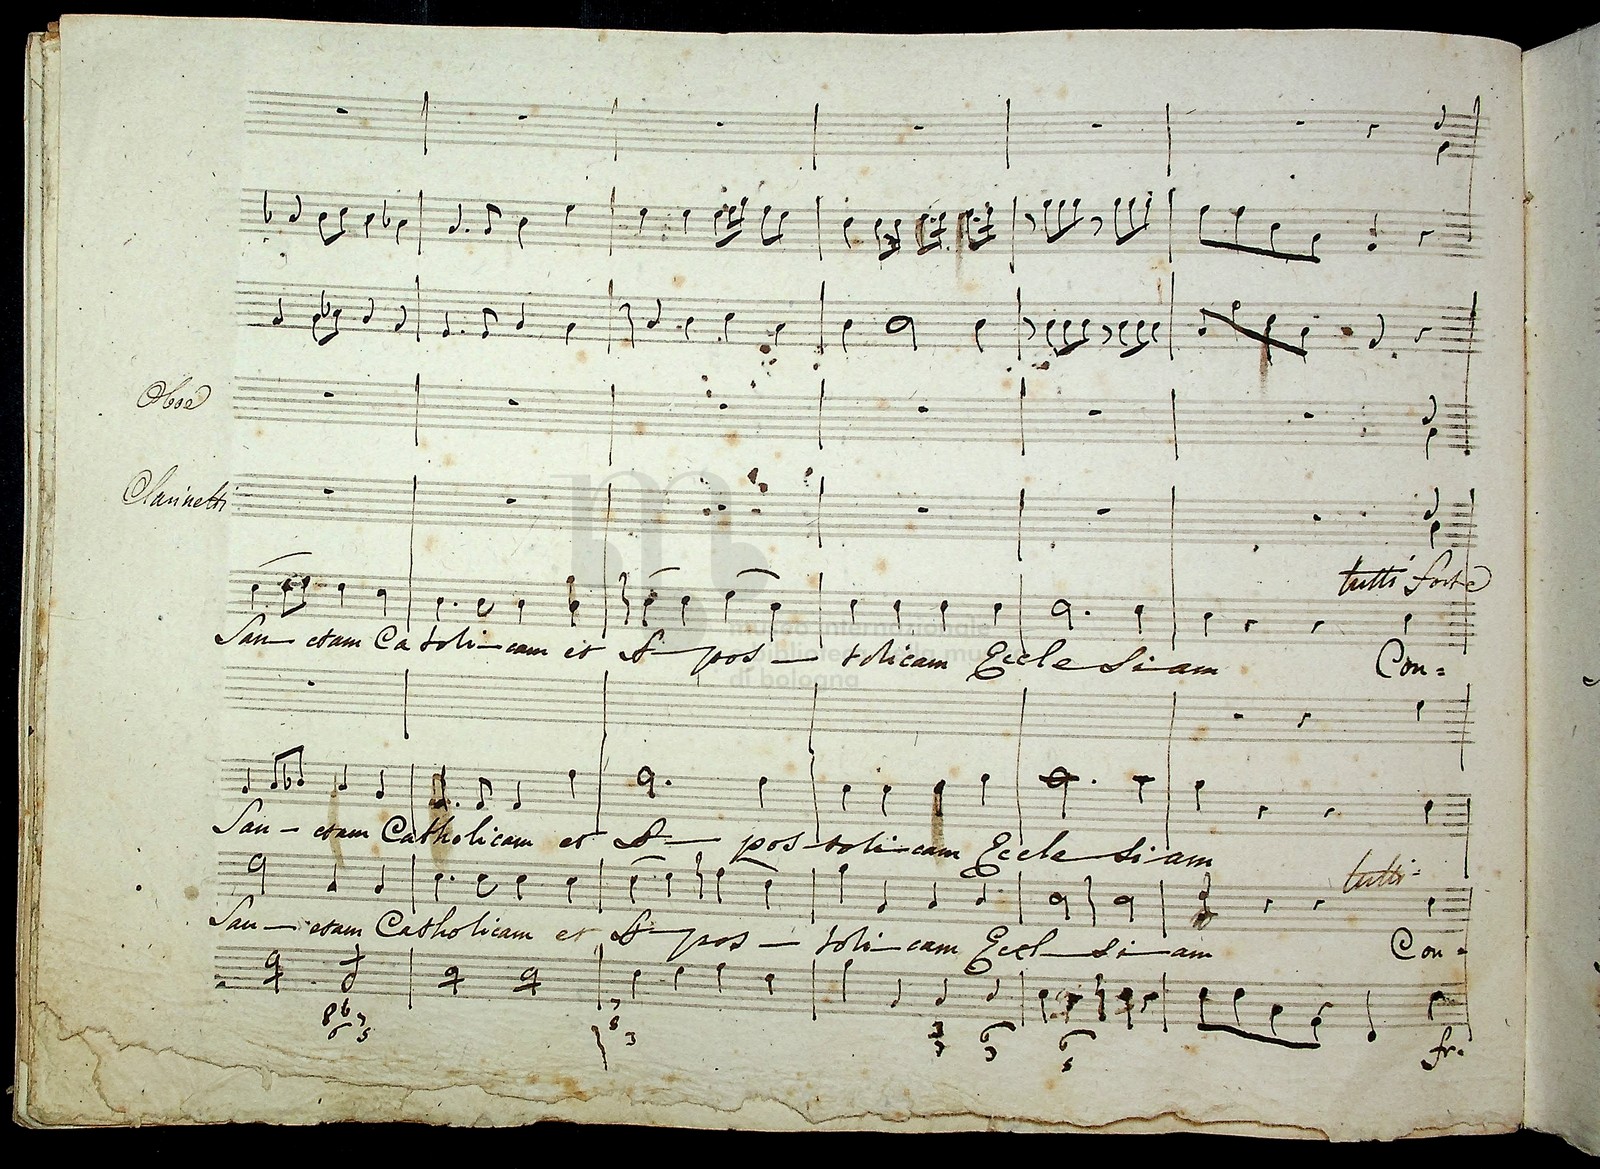 Oboe
Clarinetti
tutti forte
San- ctam Catoli-cam et A-pos- tolicam Eccle Si-am Con=
museo internazionale
e biblioteca della musica
di bologna
San- ctam Catholicam et A- pos-toli-cam Eccle Si-am
tutti
San- ctam Catholicam et A-pos- toli-cam Eccl-si-am Con-
8 b 7
6 5
7
8
3
3
6
3
6
5
fr.